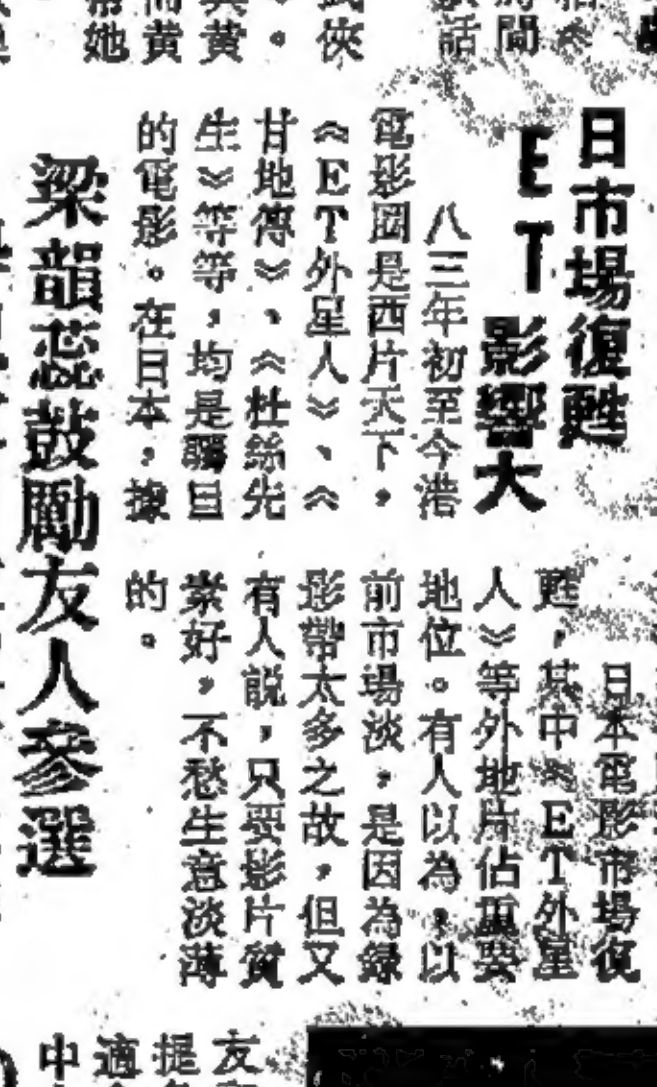 間
話
俠
。
黄
黄
她
日市場復甦
ET影響大
八三年初至今港
電影圈是西片天下，
《ET外星人》、《
甘地傳》、《杜絲先
生》等等，均是矚目
的電影。在日本，據
日本電影市場復
甦，其中《ET外星
人》等外地片佔重要
地位。有人以為，以
前市場淡，是因為錄
影帶太多之故，但又
有人說，只要影片質
素好，不愁生意淡薄
的。
梁韻蕊鼓勵友人參選
友
提
適
中